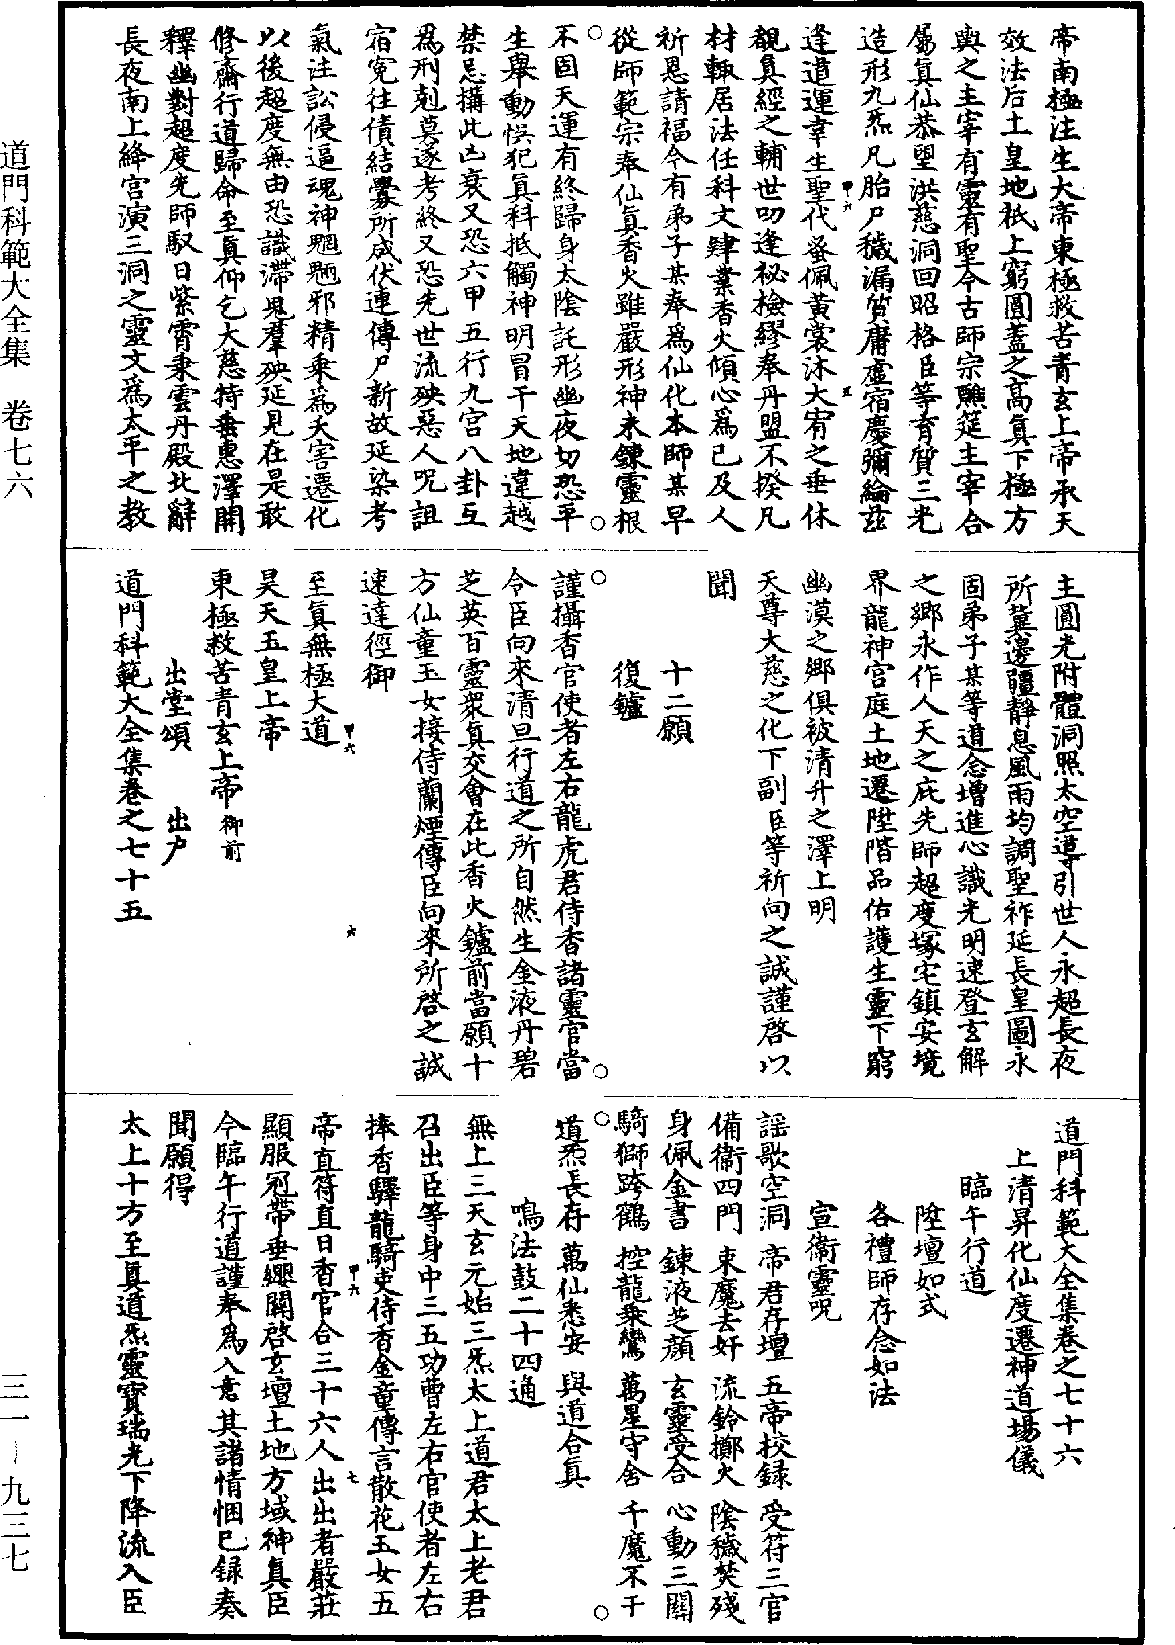 帝南極注生大帝東極救苦青玄上帝承天
效法后土皇地祇上窮圓蓋之高真下極方
輿之主宰有靈有聖今古師宗醮筵主宰合
屬真仙恭望洪慈洞回昭格臣等育質三光
造形九炁凡胎尸穢漏質膚虛宿慶彌綸茲
逢道運幸生聖代蚤佩黃裳沐大宥之垂休
覩真經之輔世叨逢祕檢繆奉丹盟不揆凡
材輒居法任科文肄業香火傾心為己及人
祈恩請福今有弟子某奉為仙化本師某早
從師範宗奉仙真香火雖嚴形神未鍊靈根
不固天運有終歸身太陰託形幽夜切恐平
生舉動悞犯真科抵觸神明冒干天地違越
禁忌搆此凶衰又恐六甲五行九宮八卦互
為刑剋莫遂考終又恐先世流殃惡人呪詛
宿冤往債結釁所成伏連傳尸新故延染考
氣注訟侵逼魂神魍魎邪精乘為夭害遷化
以後超度無由恐識滯鬼羣殃延見在是敢
修齋行道歸命至真仰乞大慈特垂惠澤開
釋幽對超度先師馭日紫霄乘雲丹殿北辭
長夜南上絳宮演三洞之靈文為太平之教
主圓光附體洞照太空導引世人永超長夜
所冀邊疆靜息風雨均調聖祚延長皇圖永
固弟子某等道念增進心識光明速登玄解
之鄉永作人天之庇先師超度塚宅鎮安境
界龍神宮庭土地遷陞階品佑護生靈下窮
幽漠之鄉俱被清升之澤上明
天尊大慈之化下副臣等祈向之誠謹啓以
聞
十二願
復鑪
謹攝香官使者左右龍虎君侍香諸靈官當
令臣向來清旦行道之所自然生金液丹碧
芝英百靈眾真交會在此香火鑪前當願十
方仙童玉女接侍蘭煙傳臣向來所啓之誠
速達徑御
至真無極大道
昊天玉皇上帝
東極救苦青玄上帝御前
出堂頌　出戶
道門科範大全集卷之七十五
道門科範大全集卷之七十六
上清昇化仙度遷神道場儀
臨午行道
陞壇如式
各禮師存念如法
宣衞靈呪
謡歌空洞　帝君存壇　五帝校録　受符三官
備衞四門　束魔去奸　流鈴擲火　陰穢焚殘
身佩金書　鍊液芝顏　玄靈受合　心動三關
騎獅跨鶴　控龍乘鸞　萬星守舍　千魔不干
道炁長存　萬仙悉安　與道合真
鳴法鼓二十四通
無上三天玄元始三炁太上道君太上老君
召出臣等身中三五功曹左右官使者左右
捧香驛龍騎吏侍香金童傳言散花玉女五
帝直符直日香官合三十六人出出者嚴莊
顯服冠帶垂纓關啓玄壇土地方域神真臣
今臨午行道謹奉為入意其諸情悃已録奏
聞願得
太上十方至真道炁靈寶瑞光下降流入臣
甲六
五
甲六
六
甲六
七
道門科範大全集　卷七六
三一－九三七